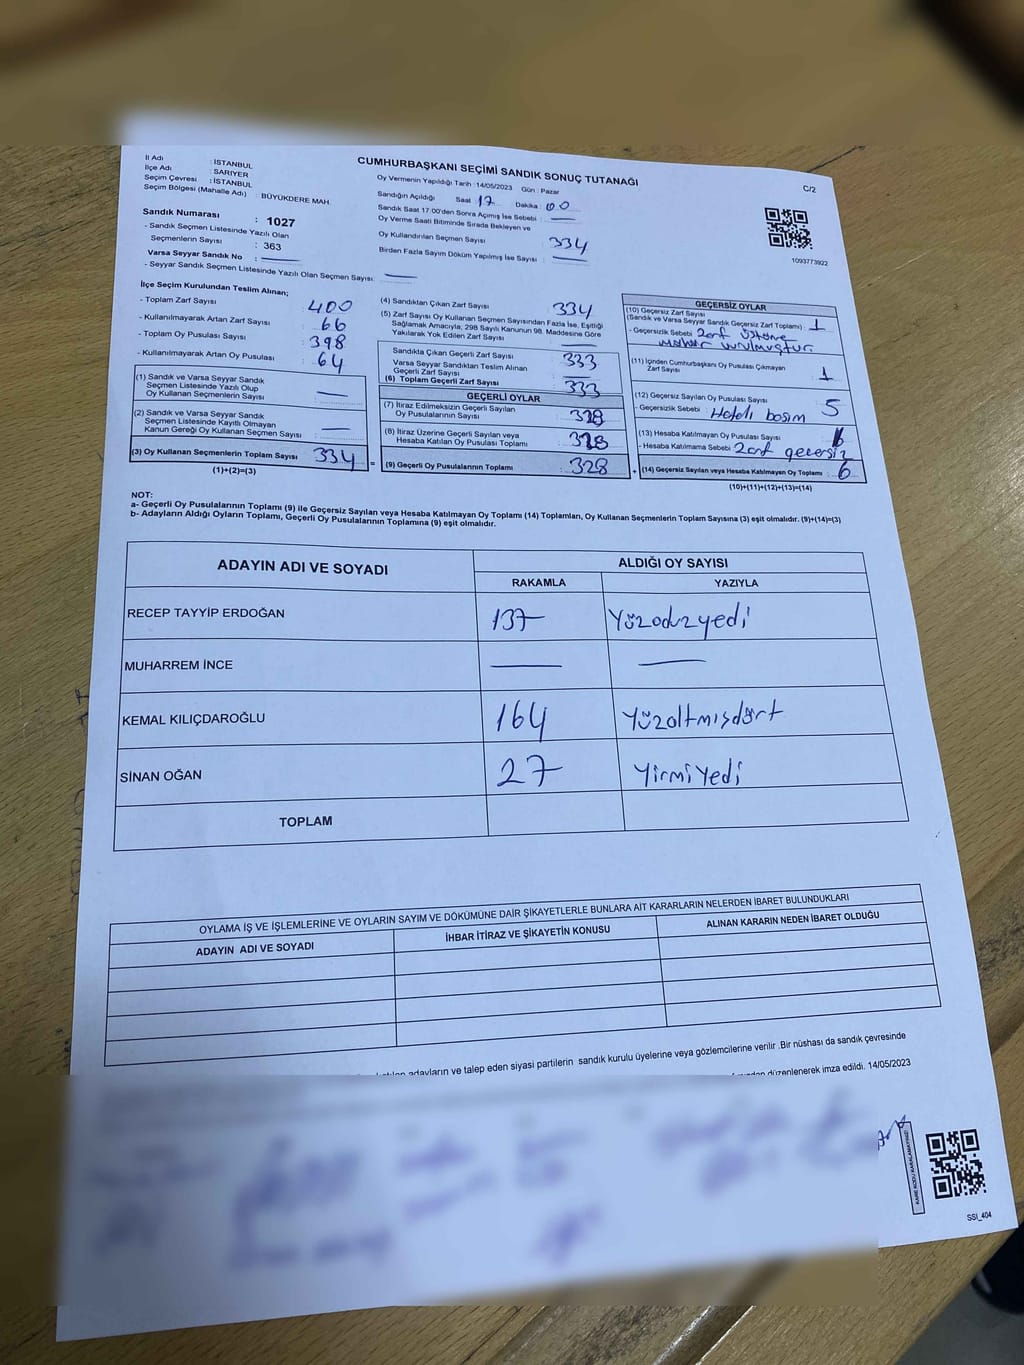 CUMHURBAŞKANI SEÇİMİ SANDIK SONUÇ TUTANAĞI
C/2
İl Adı : İSTANBUL
İlçe Adı : SARIYER
Seçim Çevresi : İSTANBUL
Seçim Bölgesi (Mahalle Adı) : BÜYÜKDERE MAH.
Sandık Numarası : 1027
- Sandık Seçmen Listesinde Yazılı Olan
Seçmenlerin Sayısı : 363
Varsa Seyyar Sandık No :
- Seyyar Sandık Seçmen Listesinde Yazılı Olan Seçmen Sayısı:
Oy Vermenin Yapıldığı Tarih : 14/05/2023 Gün : Pazar
Sandığın Açıldığı Saat 17 Dakika : 00
Sandık Saat 17:00'den Sonra Açımış İse Sebebi :
Oy Verme Saati Bitiminde Sırada Bekleyen ve
Oy Kullandırılan Seçmen Sayısı 334
Birden Fazla Sayım Döküm Yapılmış İse Sayısı :
1093773922
İlçe Seçim Kurulundan Teslim Alınan;
- Toplam Zarf Sayısı 400
- Kullanılmayarak Artan Zarf Sayısı : 66
- Toplam Oy Pusulası Sayısı : 398
- Kullanılmayarak Artan Oy Pusulası : 64
(1) Sandık ve Varsa Seyyar Sandık
Seçmen Listesinde Yazılı Olup
Oy Kullanan Seçmenlerin Sayısı :
(2) Sandık ve Varsa Seyyar Sandık
Seçmen Listesinde Kayıtlı Olmayan
Kanun Gereği Oy Kullanan Seçmen Sayısı :
(3) Oy Kullanan Seçmenlerin Toplam Sayısı : 334
(1)+(2)=(3)
(4) Sandıktan Çıkan Zarf Sayısı : 334
(5) Zarf Sayısı Oy Kullanan Seçmen Sayısından Fazla İse, Eşitliği
Sağlamak Amacıyla, 298 Sayılı Kanunun 98. Maddesine Göre
Yakılarak Yok Edilen Zarf Sayısı :
Sandıkta Çıkan Geçerli Zarf Sayısı : 333
Varsa Seyyar Sandıktan Teslim Alınan
Geçerli Zarf Sayısı :
(6) Toplam Geçerli Zarf Sayısı : 333
GEÇERLİ OYLAR
(7) İtiraz Edilmeksizin Geçerli Sayılan
Oy Pusulalarının Sayısı : 328
(8) İtiraz Üzerine Geçerli Sayılan veya
Hesaba Katılan Oy Pusulası Toplamı : 328
= (9) Geçerli Oy Pusulalarının Toplamı : 328
GEÇERSİZ OYLAR
(10) Geçersiz Zarf Sayısı
(Sandık ve Varsa Seyyar Sandık Geçersiz Zarf Toplamı) : 1
- Geçersizlik Sebebi : Zarf üstüne
mühür vurulmuştur.
(11) İçinden Cumhurbaşkanı Oy Pusulası Çıkmayan
Zarf Sayısı : 1
(12) Geçersiz Sayılan Oy Pusulası Sayısı : 5
- Geçersizlik Sebebi : Hatalı basım
(13) Hesaba Katılmayan Oy Pusulası Sayısı
- Hesaba Katılmama Sebebi : Zarf geçersiz
+ (14) Geçersiz Sayılan veya Hesaba Katılmayan Oy Toplamı : 6
(10)+(11)+(12)+(13)=(14)
NOT:
a- Geçerli Oy Pusulalarının Toplamı (9) ile Geçersiz Sayılan veya Hesaba Katılmayan Oy Toplamı (14) Toplamları, Oy Kullanan Seçmenlerin Toplam Sayısına (3) eşit olmalıdır. (9)+(14)=(3)
b- Adayların Aldığı Oyların Toplamı, Geçerli Oy Pusulalarının Toplamına (9) eşit olmalıdır.
ADAYIN ADI VE SOYADI ALDIĞI OY SAYISI
RAKAMLA YAZIYLA
RECEP TAYYİP ERDOĞAN 137 Yüzotuzyedi
MUHARREM İNCE
KEMAL KILIÇDAROĞLU 164 Yüzaltmışdört
SİNAN OĞAN 27 Yirmiyedi
TOPLAM
OYLAMA İŞ VE İŞLEMLERİNE VE OYLARIN SAYIM VE DÖKÜMÜNE DAİR ŞİKAYETLERLE BUNLARA AİT KARARLARIN NELERDEN İBARET BULUNDUKLARI
ADAYIN ADI VE SOYADI İHBAR İTİRAZ VE ŞİKAYETİN KONUSU ALINAN KARARIN NEDEN İBARET OLDUĞU
adayların ve talep eden siyasi partilerin sandık kurulu üyelerine veya gözlemcilerine verilir .Bir nüshası da sandık çevresinde
düzenlenerek imza edildi. 14/05/2023
KARE KODU KARALAMAYINIZ!
SSI_404